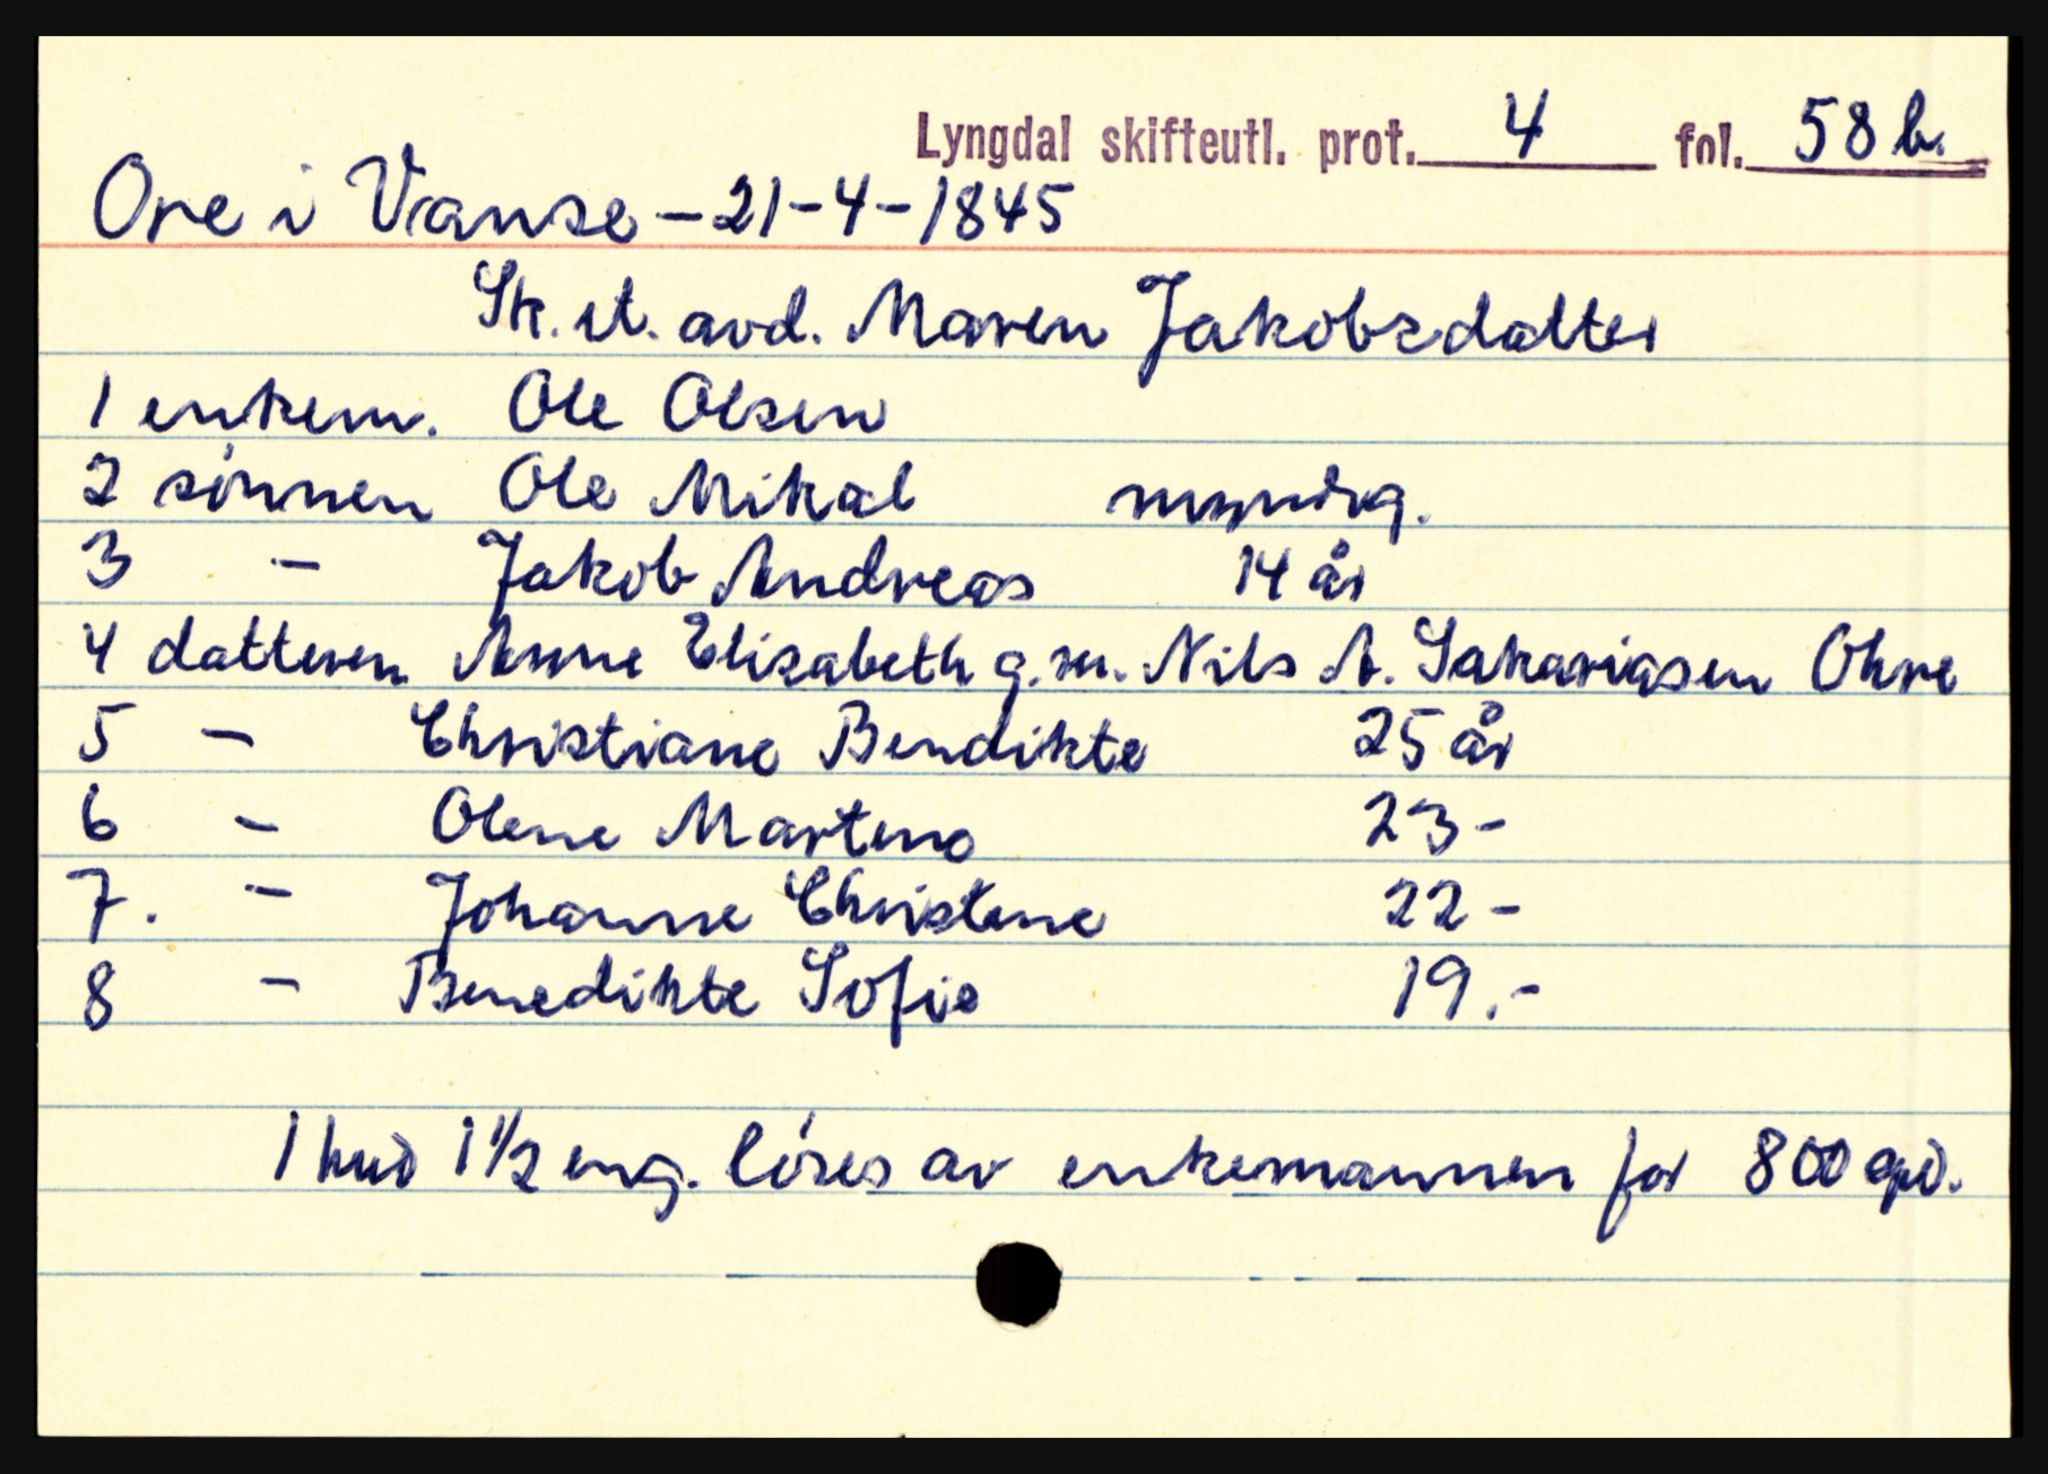 Lyngdal skifteutl. prot. 4 fol. 58 b.
Ore i Vanse - 21-4-1845
Sk. et. avd. Maren Jakobsdatter
1 enkem. Ole Olsen
2 sønnen Ole Mikal myndig.
3 - Jakob Andreas 14 år
4 datteren Anne Elizabeth g.m. Nils A. Sakariasen Ohre
5 - Christiane Bendikte 25 år
6 - Olene Martine 23 -
7. - Johanne Christene 22 -
8 - Benedikte Sofie 19.-
1 hud 1 1/2 eng. løses av enkemannen for 800 spd.